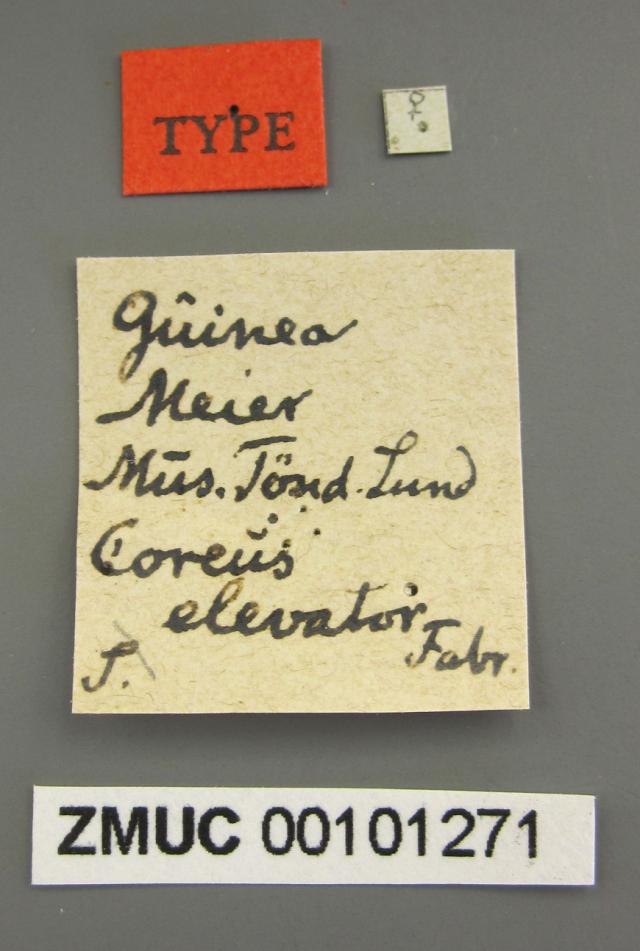 TYPE
♀
Gûinea
Meier
Mūs. Tönd. Lund
Coreūs
elevator
Fabr.
S.
ZMUC 00101271